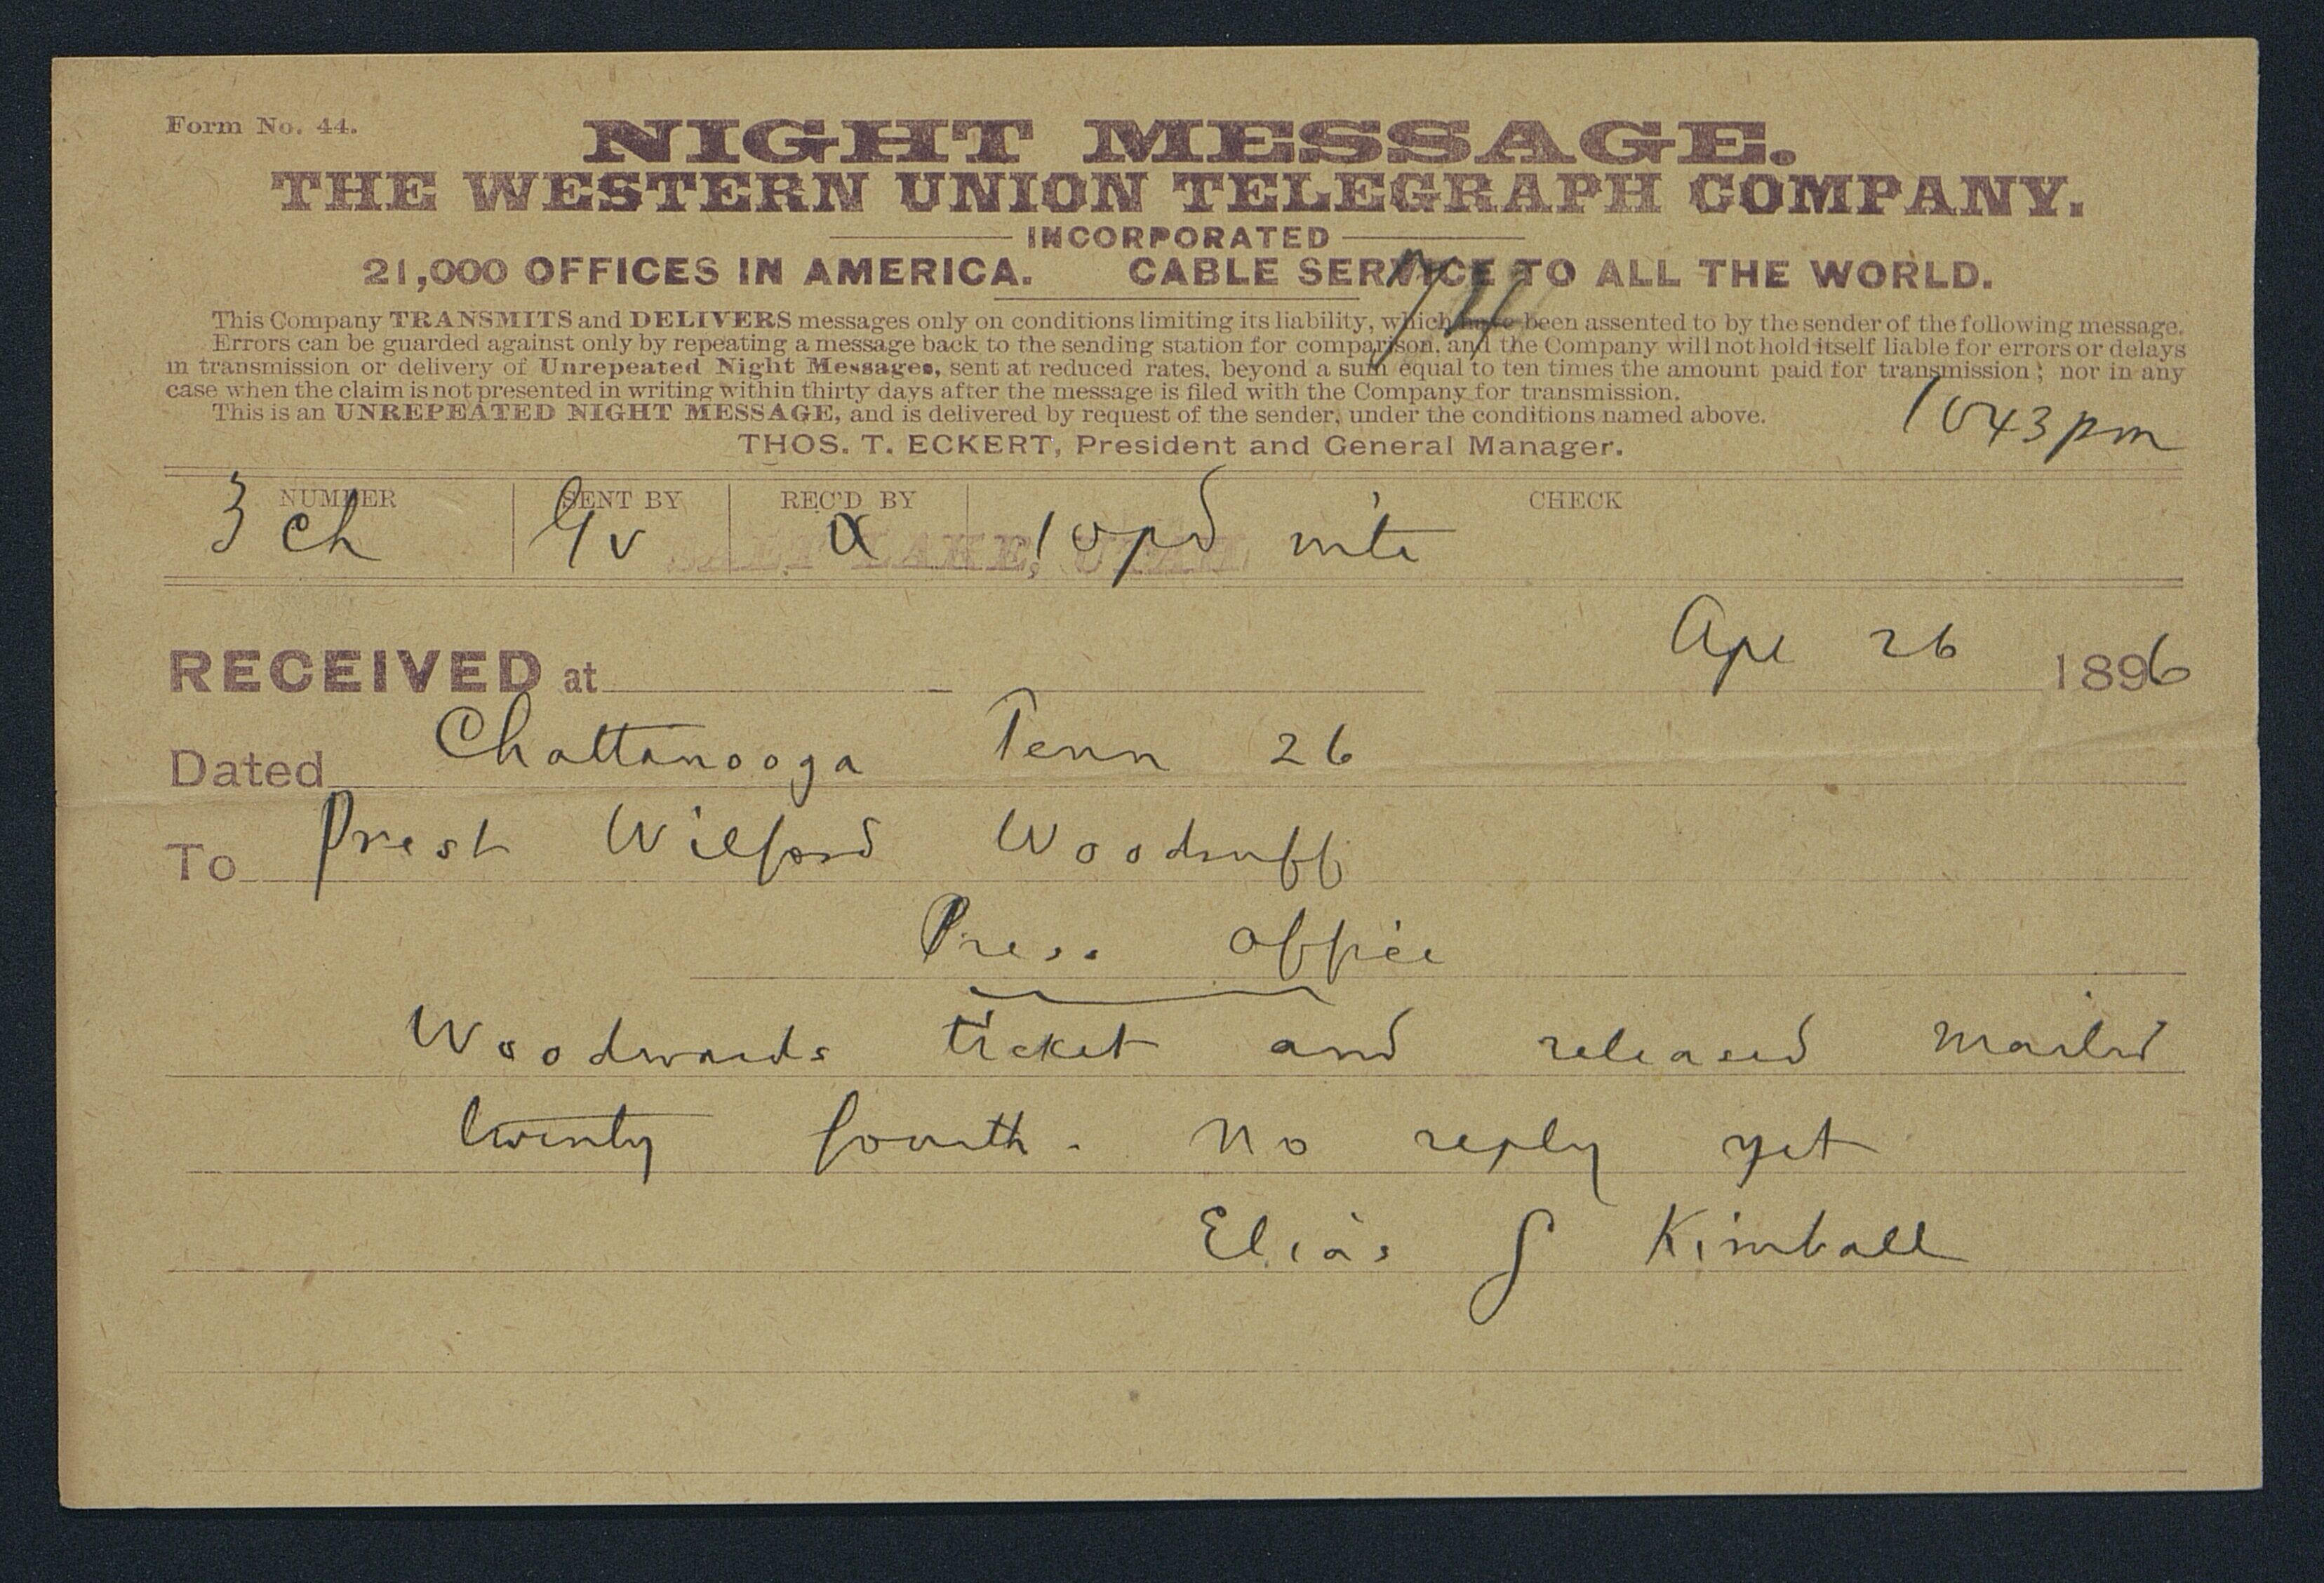 Form No. 44.
NIGHT MESSAGE.
THE WESTERN UNION TELEGRAPH COMPANY.
INCORPORATED
21,000 OFFICES IN AMERICA. CABLE SERVICE TO ALL THE WORLD.
This Company TRANSMITS and DELIVERS messages only on conditions limiting its liability, which have been assented to by the sender of the following message.
Errors can be guarded against only by repeating a message back to the sending station for comparison, and the Company will not hold itself liable for errors or delays
in transmission or delivery of Unrepeated Night Messages, sent at reduced rates, beyond a sum equal to ten times the amount paid for transmission; nor in any
case when the claim is not presented in writing within thirty days after the message is filed with the Company for transmission.
This is an UNREPEATED NIGHT MESSAGE, and is delivered by request of the sender, under the conditions named above.
1043 pm
THOS. T. ECKERT, President and General Manager.
NUMBER SENT BY REC'D BY CHECK
3 ch Gv a 10 pd nite
SALT LAKE, UTAH
Apl 26 1896
RECEIVED at
Dated Chattanooga Tenn 26
To Prest Wilford Woodruff
Pres. office
Woodwards ticket and released mailed
twenty fourth. No reply yet
Elias S Kimball